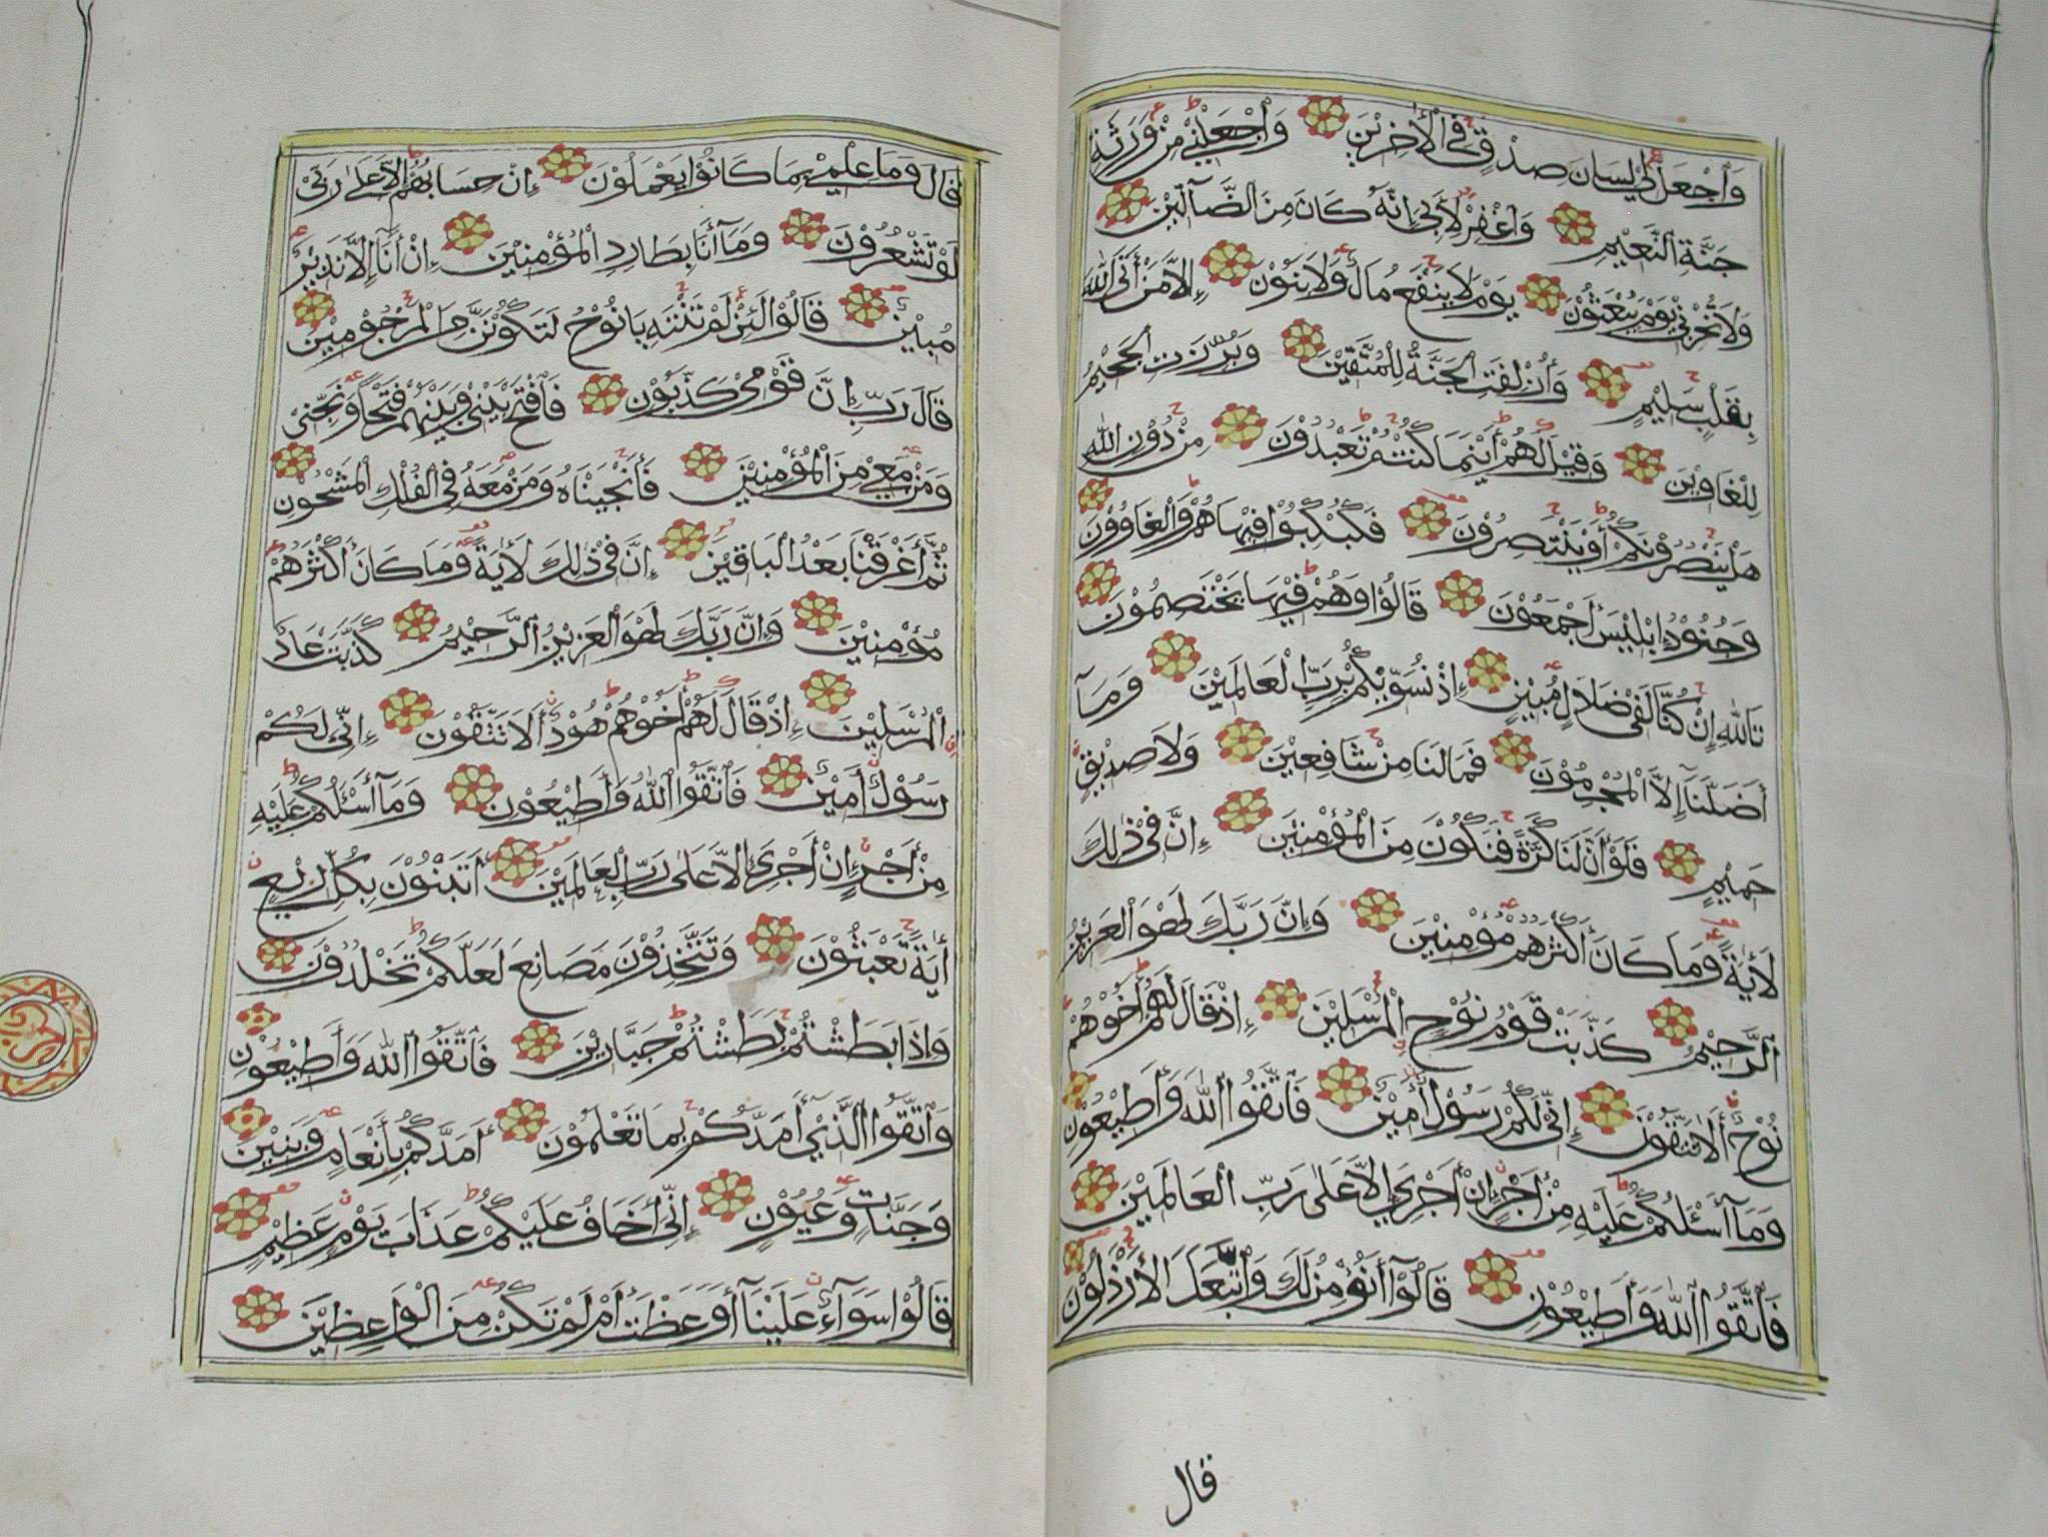 وَاجْعَلْ لِيْ لِسَانَ صِدْقٍ فِي الْاٰخِرِيْنَ وَاجْعَلْنِيْ مِنْ وَرَثَةِ
جَنَّةِ النَّعِيْمِ وَاغْفِرْ لِاَبِيْ اِنَّهُ كَانَ مِنَ الضَّآلِّيْنَ
وَلَا تُخْزِنِيْ يَوْمَ يُبْعَثُوْنَ يَوْمَ لَا يَنْفَعُ مَالٌ وَلَا بَنُوْنَ إِلَّا مَنْ أَتَى اللهَ
بِقَلْبٍ سَلِيْمٍ وَأُزْلِفَتِ الْجَنَّةُ لِلْمُتَّقِيْنَ وَبُرِّزَتِ الْجَحِيْمُ
لِلْغَاوِيْنَ وَقِيْلَ لَهُمْ أَيْنَمَا كُنْتُمْ تَعْبُدُوْنَ مِنْ دُوْنِ اللهِ
هَلْ يَنْصُرُوْنَكُمْ أَوْ يَنْتَصِرُوْنَ فَكُبْكِبُوْا فِيْهَا هُمْ وَالْغَاوُوْنَ
وَجُنُوْدُ إِبْلِيْسَ أَجْمَعُوْنَ قَالُوْا وَهُمْ فِيْهَا يَخْتَصِمُوْنَ
تَاللهِ إِنْ كُنَّا لَفِيْ ضَلَالٍ مُبِيْنٍ إِذْ نُسَوِّيْكُمْ بِرَبِّ الْعَالَمِيْنَ وَمَآ
أَضَلَّنَآ إِلَّا الْمُجْرِمُوْنَ فَمَا لَنَا مِنْ شَافِعِيْنَ وَلَا صَدِيْقٍ
حَمِيْمٍ فَلَوْ أَنَّ لَنَا كَرَّةً فَنَكُوْنَ مِنَ الْمُؤْمِنِيْنَ إِنَّ فِيْ ذٰلِكَ
لَأٰيَةً وَمَا كَانَ أَكْثَرُهُمْ مُؤْمِنِيْنَ وَإِنَّ رَبَّكَ لَهُوَ الْعَزِيْزُ
الرَّحِيْمُ كَذَّبَتْ قَوْمُ نُوْحٍ الْمُرْسَلِيْنَ إِذْ قَالَ لَهُمْ أَخُوْهُمْ
نُوْحٌ أَلَا تَتَّقُوْنَ إِنِّيْ لَكُمْ رَسُوْلٌ أَمِيْنٌ فَاتَّقُوا اللهَ وَأَطِيْعُوْنِ
وَمَآ أَسْئَلُكُمْ عَلَيْهِ مِنْ أَجْرٍ إِنْ أَجْرِيَ إِلَّا عَلٰى رَبِّ الْعَالَمِيْنَ
فَاتَّقُوا اللهَ وَأَطِيْعُوْنِ قَالُوْآ أَنُؤْمِنُ لَكَ وَاتَّبَعَكَ الْأَرْذَلُوْنَ
قال
قَالَ وَمَا عِلْمِيْ بِمَا كَانُوْا يَعْمَلُوْنَ إِنْ حِسَابُهُمْ إِلَّا عَلٰى رَبِّيْ
لَوْ تَشْعُرُوْنَ وَمَآ أَنَا بِطَارِدِ الْمُؤْمِنِيْنَ إِنْ أَنَا إِلَّا نَذِيْرٌ
مُبِيْنٌ قَالُوْا لَئِنْ لَمْ تَنْتَهِ يَا نُوْحُ لَتَكُوْنَنَّ مِنَ الْمَرْجُوْمِيْنَ
قَالَ رَبِّ إِنَّ قَوْمِيْ كَذَّبُوْنِ فَافْتَحْ بَيْنِيْ وَبَيْنَهُمْ فَتْحًا وَنَجِّنِيْ
وَمَنْ مَعِيَ مِنَ الْمُؤْمِنِيْنَ فَأَنْجَيْنَاهُ وَمَنْ مَعَهُ فِي الْفُلْكِ الْمَشْحُوْنِ
ثُمَّ أَغْرَقْنَا بَعْدُ الْبَاقِيْنَ إِنَّ فِيْ ذٰلِكَ لَأٰيَةً وَمَا كَانَ أَكْثَرُهُمْ
مُؤْمِنِيْنَ وَإِنَّ رَبَّكَ لَهُوَ الْعَزِيْزُ الرَّحِيْمُ كَذَّبَتْ عَادُ
الْمُرْسَلِيْنَ إِذْ قَالَ لَهُمْ أَخُوْهُمْ هُوْدٌ أَلَا تَتَّقُوْنَ إِنِّيْ لَكُمْ
رَسُوْلٌ أَمِيْنٌ فَاتَّقُوا اللهَ وَأَطِيْعُوْنِ وَمَآ أَسْئَلُكُمْ عَلَيْهِ
مِنْ أَجْرٍ إِنْ أَجْرِيَ إِلَّا عَلٰى رَبِّ الْعَالَمِيْنَ أَتَبْنُوْنَ بِكُلِّ رِيْعٍ
أٰيَةً تَعْبَثُوْنَ وَتَتَّخِذُوْنَ مَصَانِعَ لَعَلَّكُمْ تَخْلُدُوْنَ
وَإِذَا بَطَشْتُمْ بَطَشْتُمْ جَبَّارِيْنَ فَاتَّقُوا اللهَ وَأَطِيْعُوْنِ
وَاتَّقُوا الَّذِيْ أَمَدَّكُمْ بِمَا تَعْلَمُوْنَ أَمَدَّكُمْ بِأَنْعَامٍ وَبَنِيْنَ
وَجَنَّاتٍ وَعُيُوْنٍ إِنِّيْ أَخَافُ عَلَيْكُمْ عَذَابَ يَوْمٍ عَظِيْمٍ
قَالُوْا سَوَآءٌ عَلَيْنَآ أَوَعَظْتَ أَمْ لَمْ تَكُنْ مِنَ الْوَاعِظِيْنَ